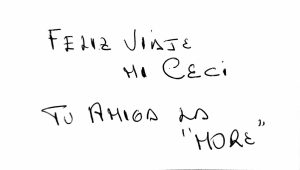 FELIZ VIAJE
MI CECI
TU AMIGA LA
"MORE"